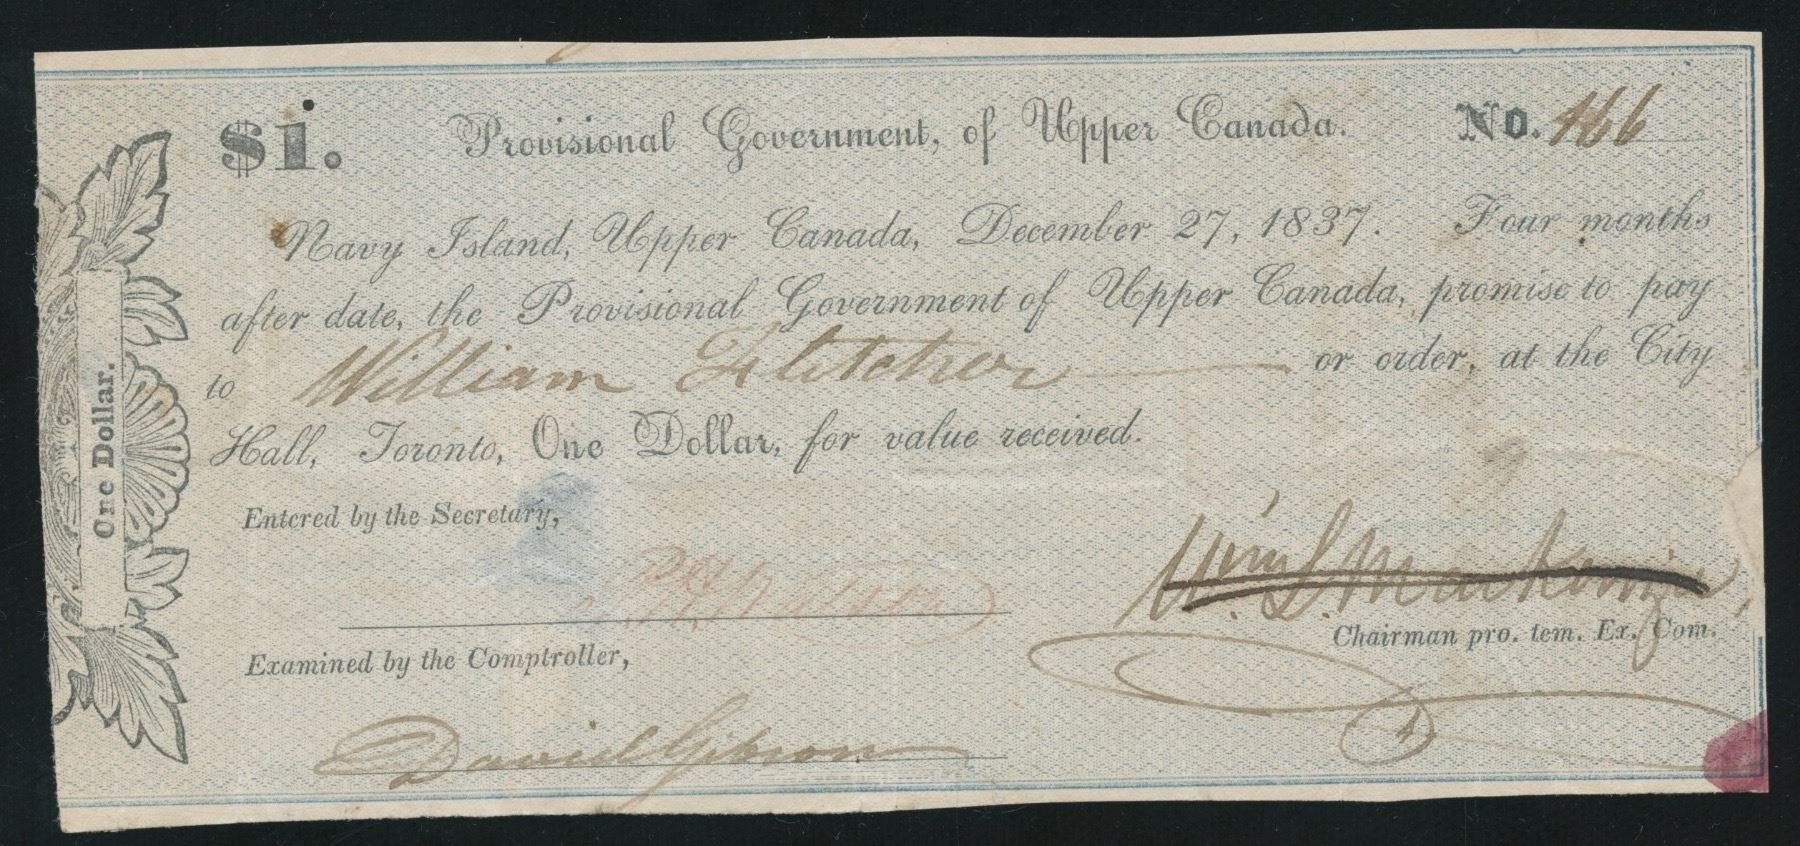 $1. Provisional Government, of Upper Canada. No. 466
Navy Island, Upper Canada, December 27, 1837. Four months
after date, the Provisional Government of Upper Canada, promise to pay
to William Fletcher or order, at the City
Hall, Toronto, One Dollar, for value received.
One Dollar.
Entered by the Secretary,
Wm. L. Mackenzie,
Chairman pro. tem. Ex. Com.
Examined by the Comptroller,
David Gibson